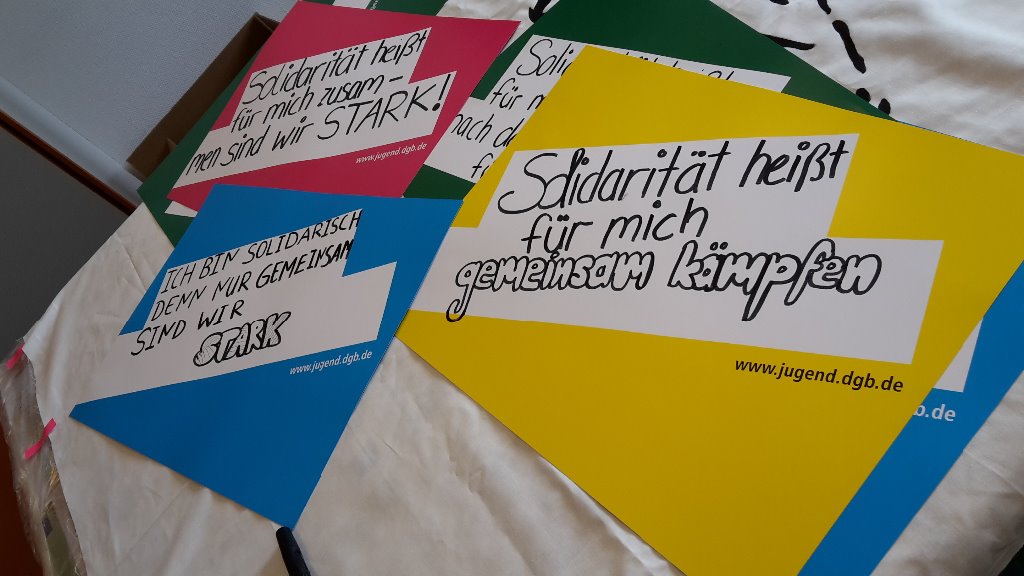 Solidarität heißt
für mich zusam-
men sind wir STARK!
www.jugend.dgb.de
für
ICH BIN SOLIDARISCH
DENN NUR GEMEINSAM
SIND WIR
STARK
www.jugend.dgb.de
Solidarität heißt
für mich
gemeinsam kämpfen
www.jugend.dgb.de
b.de